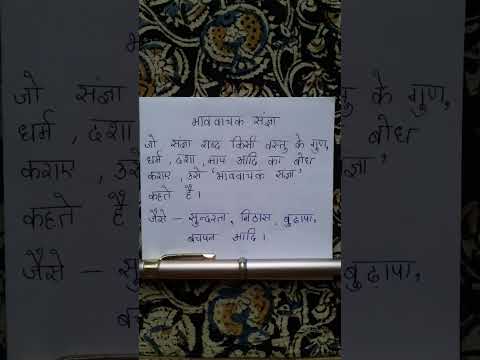 भाववाचक संज्ञा
जो संज्ञा शब्द किसी वस्तु के गुण,
धर्म, दशा, भाव आदि का बोध
कराए, उसे 'भाववाचक संज्ञा'
कहते हैं।
जैसे – सुन्दरता, मिठास, बुढ़ापा,
बचपन आदि।